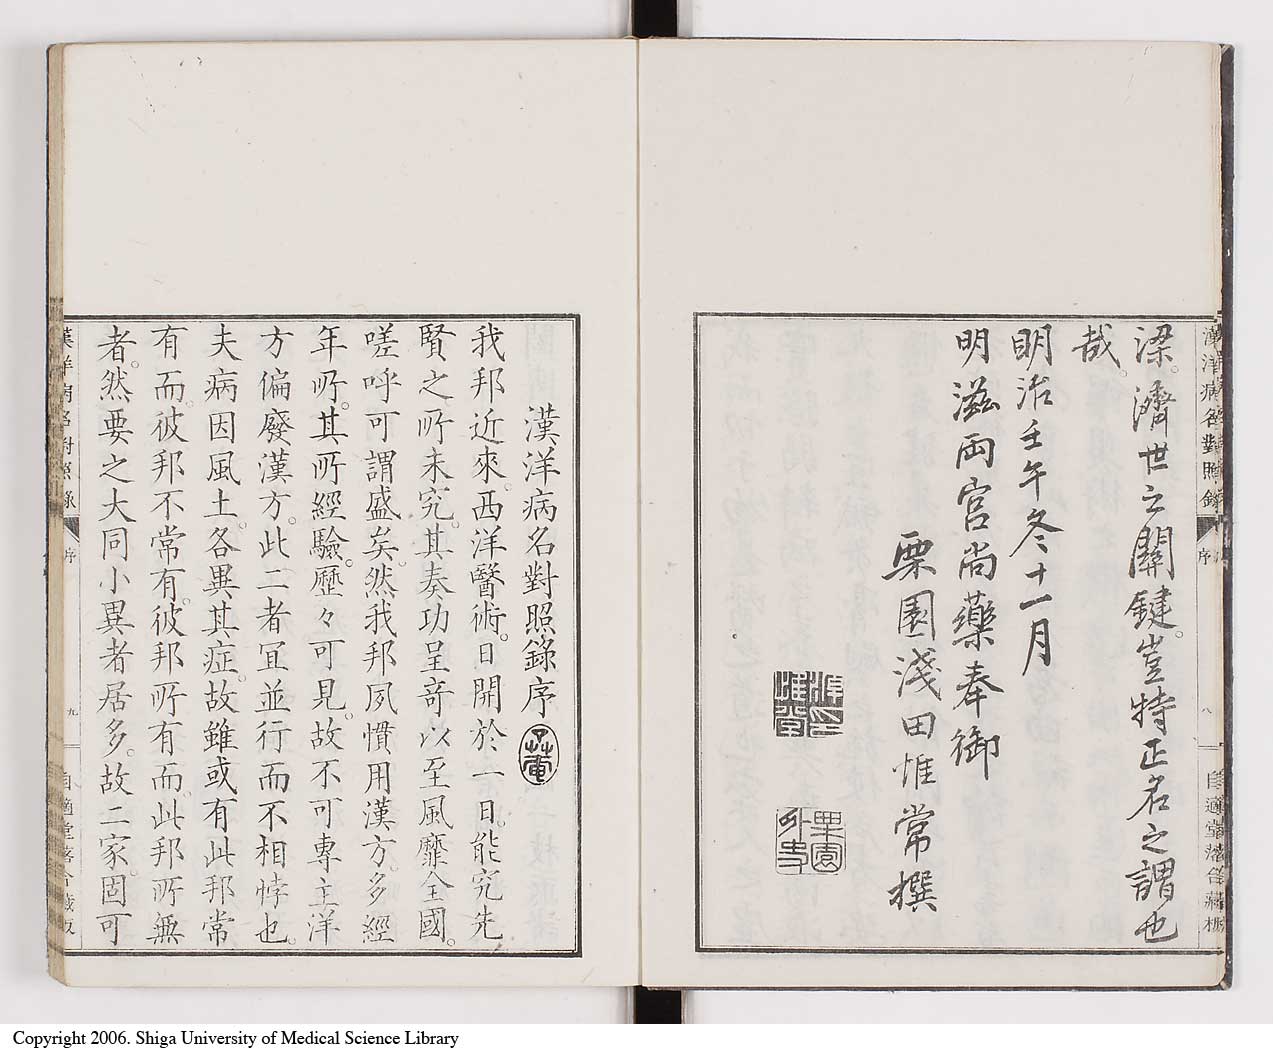 梁。濟世之關鍵。豈特正名之謂也
哉。
明治壬午冬十一月
明滋両宮尚藥奉御
栗園淺田惟常撰
栗園
漢洋病名對照錄
序
八
自適堂落合藏板
漢洋病名對照錄序
我邦近來。西洋醫術。日開於一日。能究先
賢之所未究。其奏功呈奇以至風靡全國。
嗟呼可謂盛矣。然我邦夙慣用漢方。多經
年所。其所經驗。歷々可見。故不可專主洋
方偏廢漢方。此二者冝並行而不相悖也。
夫病因風土。各異其症。故雖或有此邦常
有。而彼邦不常有。彼邦所有。而此邦所無
者。然要之大同小異者居多。故二家固可
漢洋病名對照錄
序
九
自適堂落合藏板
Copyright 2006. Shiga University of Medical Science Library